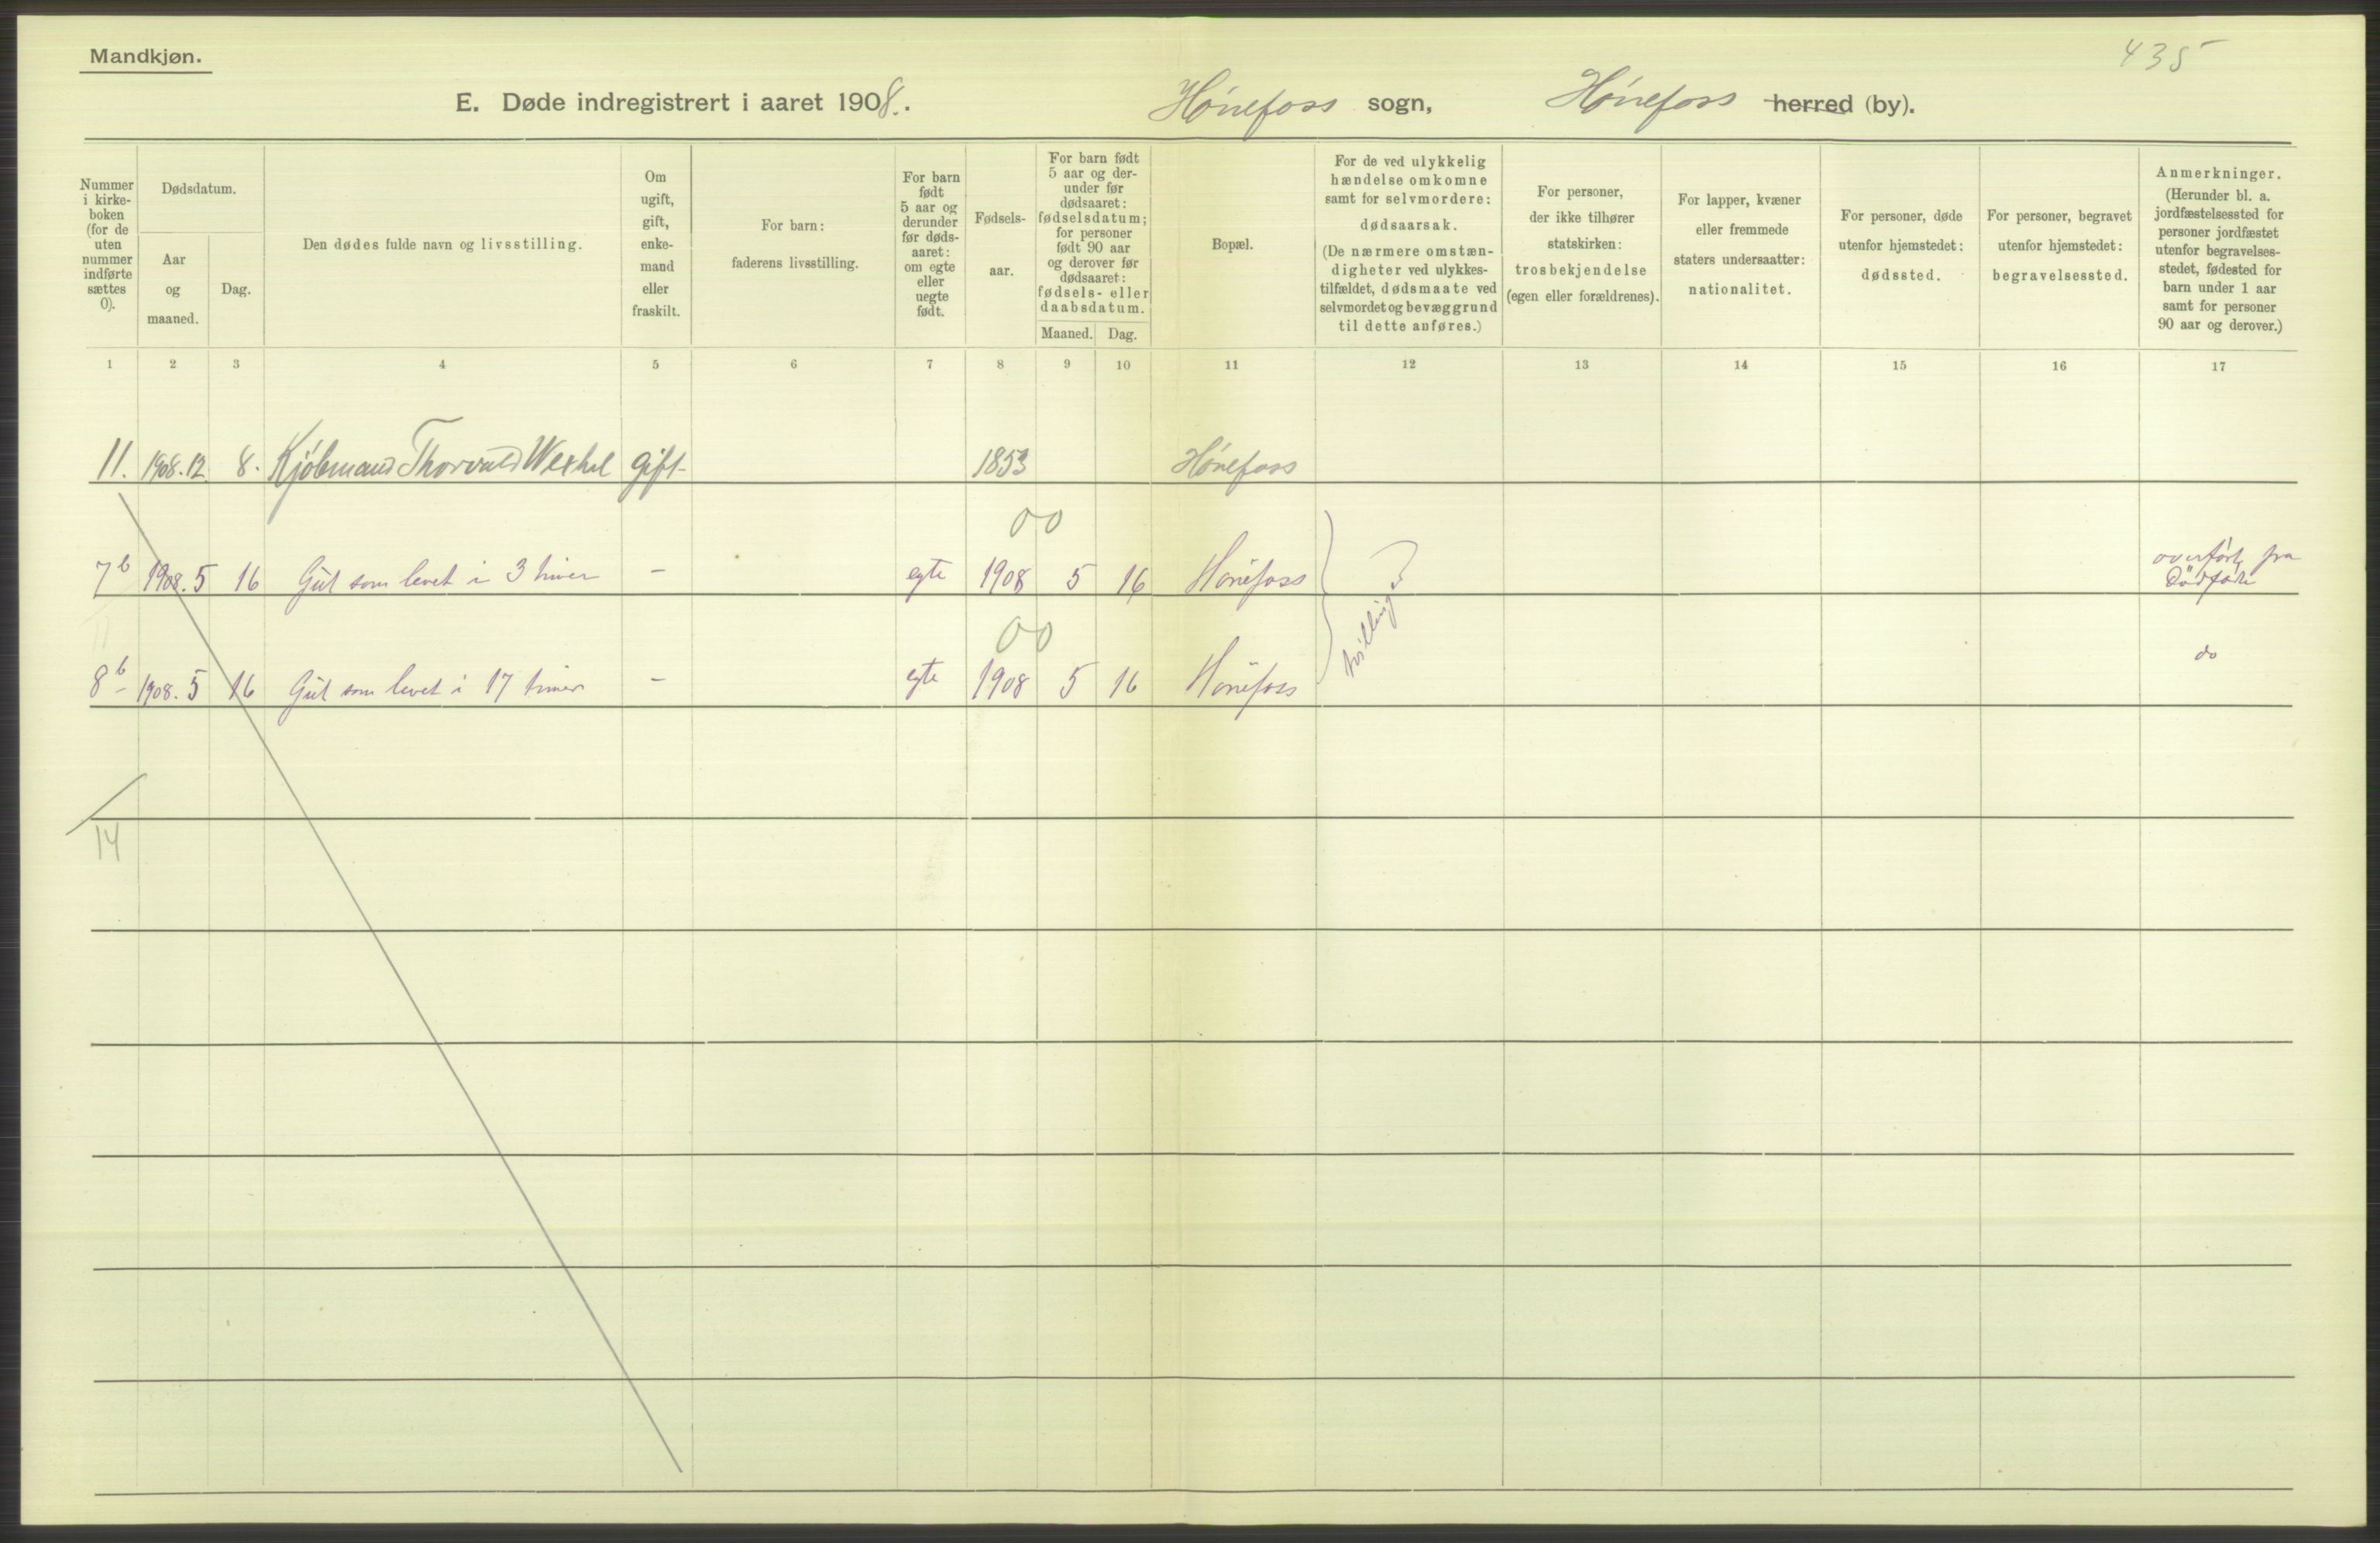 Mandkjøn.
435
E. Døde indregistrert i aaret 1908. Hønefoss sogn, Hønefoss herred (by).
Nummer i kirke-boken (for de uten nummer indførte sættes 0).
Dødsdatum.
Aar og maaned.
Dag.
Den dødes fulde navn og livsstilling.
Om ugift, gift, enke-mand eller fraskilt.
For barn: faderens livsstilling.
For barn født 5 aar og derunder før døds-aaret: om egte eller uegte født.
Fødsels-aar.
For barn født 5 aar og der-under før dødsaaret: fødselsdatum; for personer født 90 aar og derover før dødsaaret: fødsels- eller daabsdatum.
Maaned. Dag.
Bopæl.
For de ved ulykkelig hændelse omkomne samt for selvmordere: dødsaarsak. (De nærmere omstæn-digheter ved ulykkes-tilfældet, dødsmaate ved selvmordet og bevæggrund til dette anføres.)
For personer, der ikke tilhører statskirken: trosbekjendelse (egen eller forældrenes).
For lapper, kvæner eller fremmede staters undersaatter: nationalitet.
For personer, døde utenfor hjemstedet: dødssted.
For personer, begravet utenfor hjemstedet: begravelsessted.
Anmerkninger. (Herunder bl. a. jordfæstelsessted for personer jordfæstet utenfor begravelses-stedet, fødested for barn under 1 aar samt for personer 90 aar og derover.)
1 2 3 4 5 6 7 8 9 10 11 12 13 14 15 16 17
11. 1908.12. 8. Kjøbmand Thorvald Wexhel gift 1853 Hønefoss
00
7b 1908.5 16 Gut som levet i 3 timer – egte 1908 5 16 Hønefoss tvillinger overført fra Dødfødte
00
8b 1908.5 16 Gut som levet i 17 timer – egte 1908 5 16 Hønefoss do
14